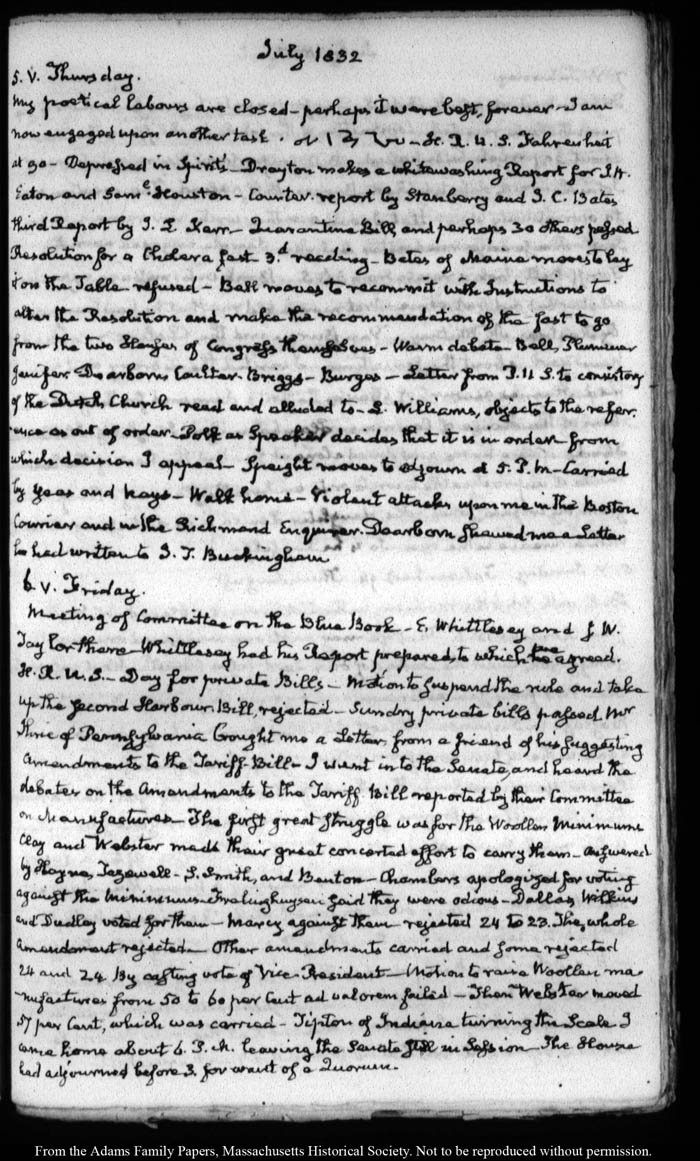 July 1832
5. V. Thursday.
My poetical labours are closed – perhaps it were best, forever – I am
now engaged upon another task. – H. R. U. S. Fahrenheit
at 90 – Depressed in Spirits – Drayton makes a whitewashing Report for J. H.
Eaton and Saml. Houston – Counter-report by Stanberry and I. C. Bates
third Report by J. L. Kerr – Quarantine Bill, and perhaps 30 others passed
Resolution for a Cholera fast 3.d reading – Bates of Maine moves to lay
it on the Table refused – Bell moves to recommit with Instructions to
alter the Resolution and make the recommendation of the fast to go
from the two Houses of Congress themselves – Warm debate – Bell, Plummer
Jenifer Dearborn Coulter Briggs – Burges – Letter from P. U S. to consistory
of the Dutch Church read and alluded to – L. Williams, objects to the refer-
ence as out of order. Polk as Speaker decides that it is in order – from
which decision I appeal – Speight moves to adjourn at 5. P. M – Carried
by yeas and nays – Walk home – Violent attacks upon me in the Boston
Courier and in the Richmond Enquirer. Dearborn shewed me a Letter
he had written to J. T. Buckingham
6. V. Friday.
Meeting of Committee on the Blue Book – E. Whittlesey and J W.
Taylor there – Whittlesey had his Report prepared, to which we agreed.
H. R. U. S. – Day for private Bills – Motion to suspend the rule and take
up the second Harbour Bill, rejected – Sundry private bills passed. Mr
of Pennsylvania brought me a Letter, from a friend of his suggesting
Amendments to the Tariff Bill – I went in to the Senate, and heard the
debates on the Amendments to the Tariff Bill reported by their Committee
on Manufactures – The first great struggle was for the Woollen Minimums
Clay and Webster made their great concerted effort to carry them – Answered
by Hayne, Tazewell – S. Smith, and Benton – Chambers apologized for voting
against the minimums – Frelinghuysen said they were odious – Dallas, Wilkins
and Dudley voted for them – Marcy against them rejected 24 to 23. The whole
amendment rejected – Other amendments carried and some rejected
24 and 24. By casting vote of Vice-President – Motion to raise Woollen ma-
nufactures from 50 to 60 per Cent ad valorem failed – Then Webster moved
57 per Cent, which was carried – Tipton of Indiana turning the Scale I
came home about 6. P. M. leaving the Senate still in Session The House
had adjourned before 3. for want of a Quorum.
From the Adams Family Papers, Massachusetts Historical Society. Not to be reproduced without permission.